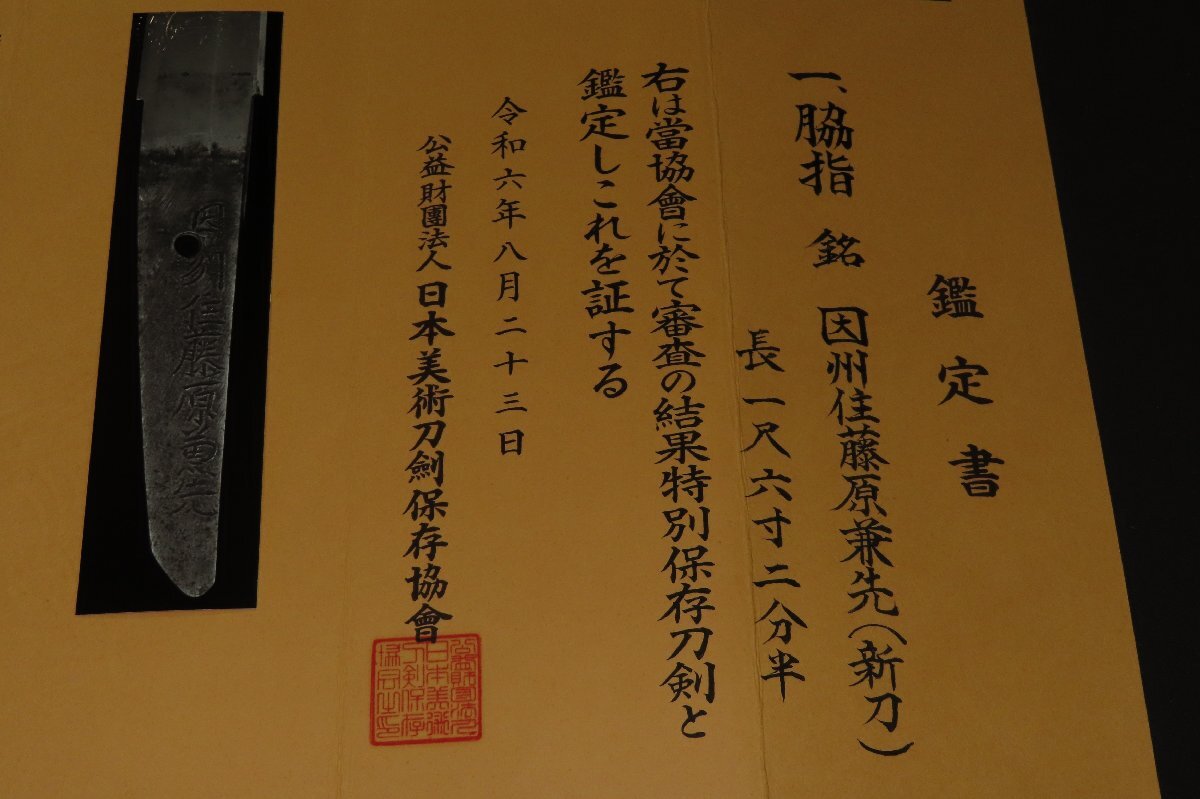 鑑定書
一、脇指 銘 因州住藤原兼先(新刀)
長一尺六寸二分半
右は當協會に於て審査の結果特別保存刀剣と
鑑定しこれを証する
令和六年八月二十三日
公益財團法人日本美術刀劍保存協會
因州住藤原兼先